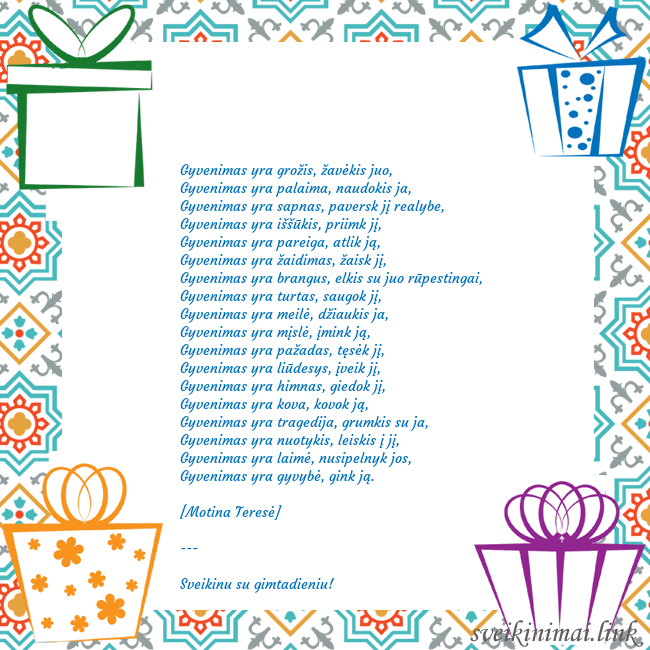 Gyvenimas yra grožis, žavėkis juo,
Gyvenimas yra palaima, naudokis ja,
Gyvenimas yra sapnas, paversk jį realybe,
Gyvenimas yra iššūkis, priimk jį,
Gyvenimas yra pareiga, atlik ją,
Gyvenimas yra žaidimas, žaisk jį,
Gyvenimas yra brangus, elkis su juo rūpestingai,
Gyvenimas yra turtas, saugok jį,
Gyvenimas yra meilė, džiaukis ja,
Gyvenimas yra mįslė, įmink ją,
Gyvenimas yra pažadas, tęsėk jį,
Gyvenimas yra liūdesys, įveik jį,
Gyvenimas yra himnas, giedok jį,
Gyvenimas yra kova, kovok ją,
Gyvenimas yra tragedija, grumkis su ja,
Gyvenimas yra nuotykis, leiskis į jį,
Gyvenimas yra laimė, nusipelnyk jos,
Gyvenimas yra gyvybė, gink ją.
[Motina Teresė]
---
Sveikinu su gimtadieniu!
sveikinimai.link